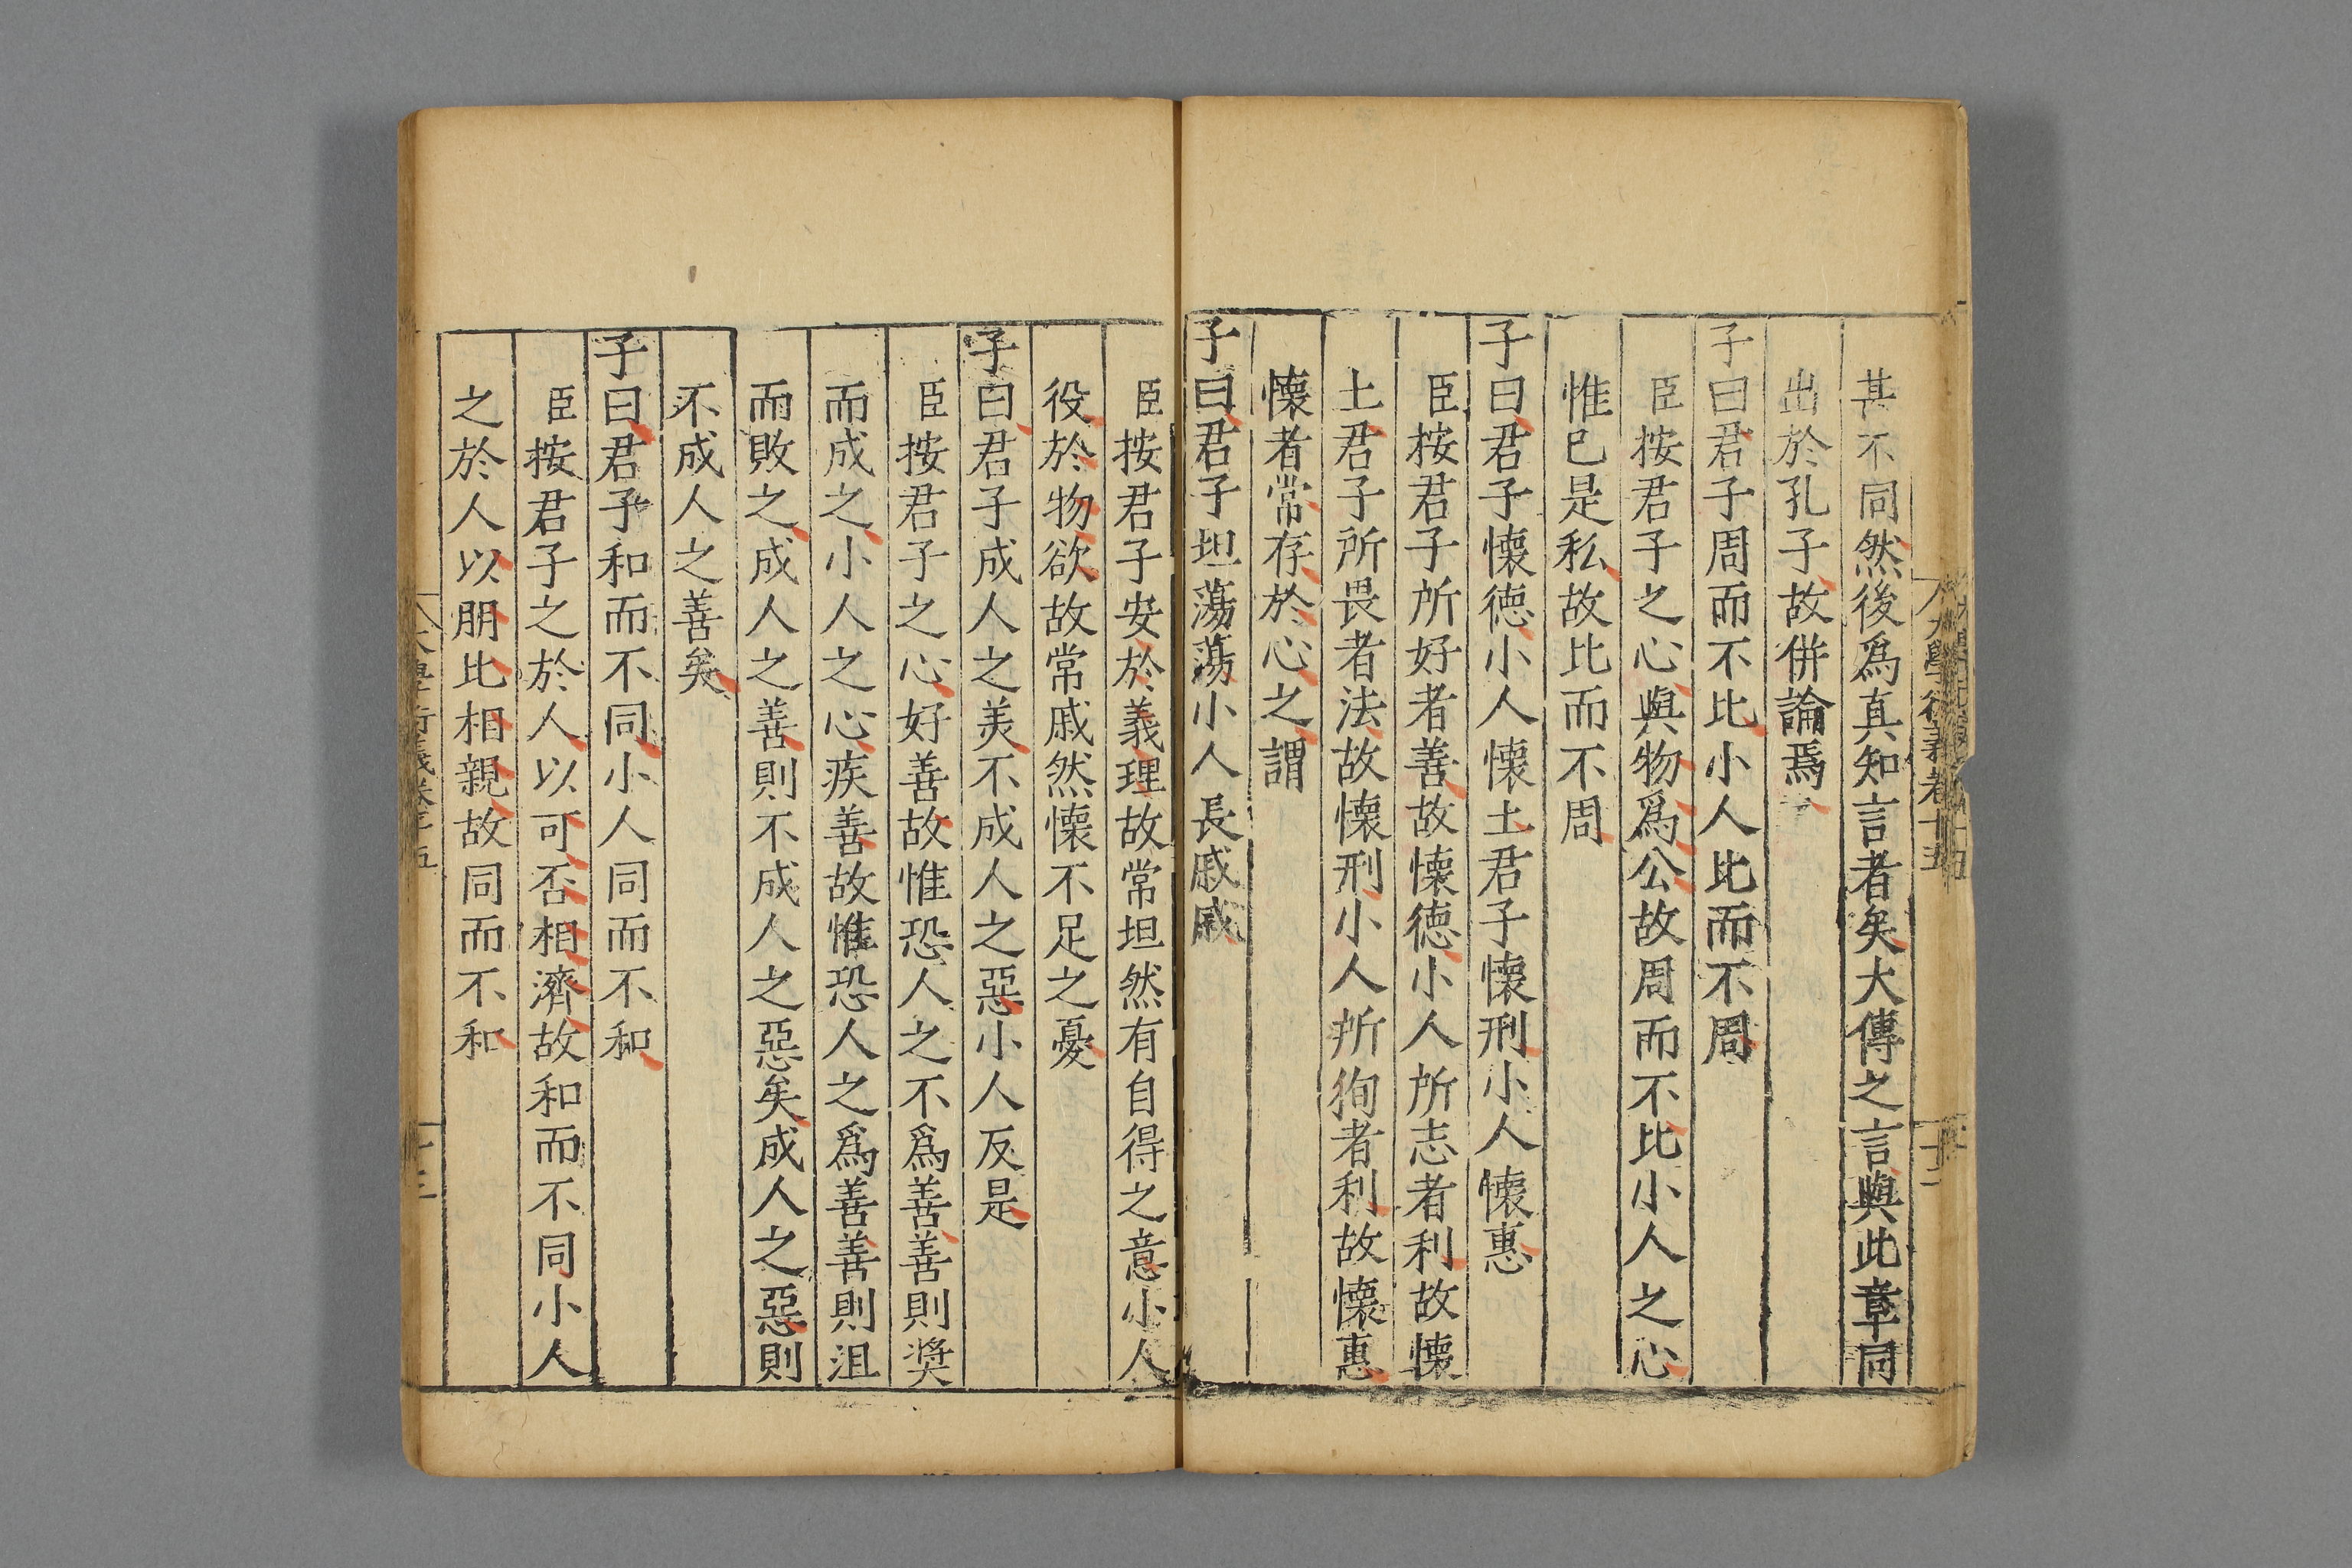 甚不同然後爲真知言者矣大傳之言與此章同
出於孔子故併論焉
子曰君子周而不比小人比而不周
臣按君子之心與物爲公故周而不比小人之心
惟已是私故比而不周
子曰君子懷德小人懷土君子懷刑小人懷惠
臣按君子所好者善故懷德小人所志者利故懷
土君子所畏者法故懷刑小人所狥者利故懷惠
懷者常存於心之謂
子曰君子坦蕩蕩小人長戚戚
臣按君子安於義理故常坦然有自得之意小人
役於物欲故常戚然懷不足之憂
子曰君子成人之美不成人之惡小人反是
臣按君子之心好善故惟恐人之不爲善善則奬
而成之小人之心疾善故惟恐人之爲善善則沮
而敗之成人之善則不成人之惡矣成人之惡則
不成人之善矣
子曰君子和而不同小人同而不和
臣按君子之於人以可否相濟故和而不同小人
之於人以朋比相親故同而不和